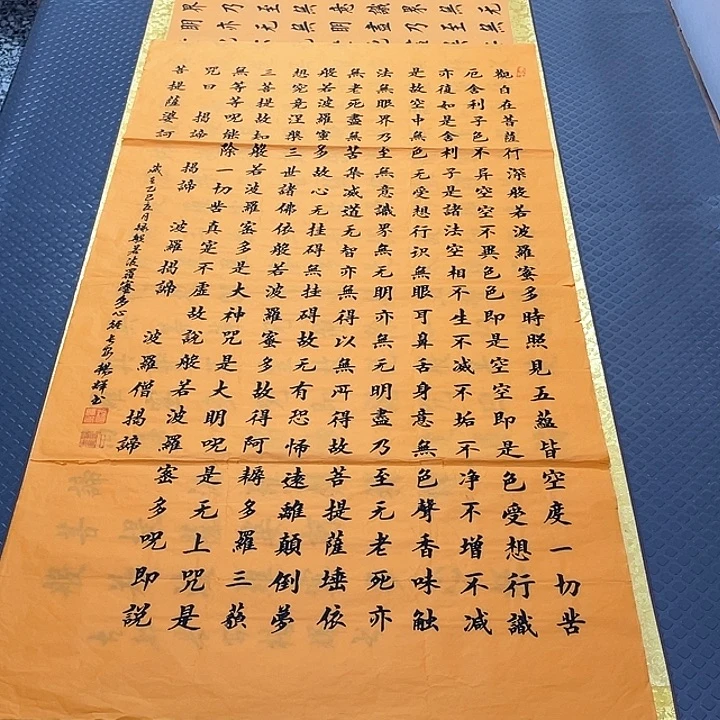 觀自在菩薩行深般若波羅蜜多時照見五蘊皆空度一切苦
厄舍利子色不异空空不異色色即是空空即是色受想行識
亦復如是舍利子是諸法空相不生不减不垢不净不增不减
是故空中無色无受想行识無眼耳鼻舌身意無色聲香味触
法無眼界乃至無意識界無无明亦無无明盡乃至无老死亦
無老死盡無苦集减道无智亦無得以無所得故菩提薩埵依
般若波羅蜜多故心无挂碍無挂碍故无有恐怖遠離顛倒夢
想究竟涅槃三世諸佛依般若波羅蜜多故得阿耨多羅三藐
三菩提故知般若波羅蜜多是大神咒是大明呪是无上咒是
無等等呪能除一切苦真实不虚故説般若波羅蜜多呪即説
呪曰 揭諦 揭諦 波羅揭諦 波羅僧揭諦
菩提薩婆訶
歲在乙巳 月録般若波羅蜜多心經 楊輝书